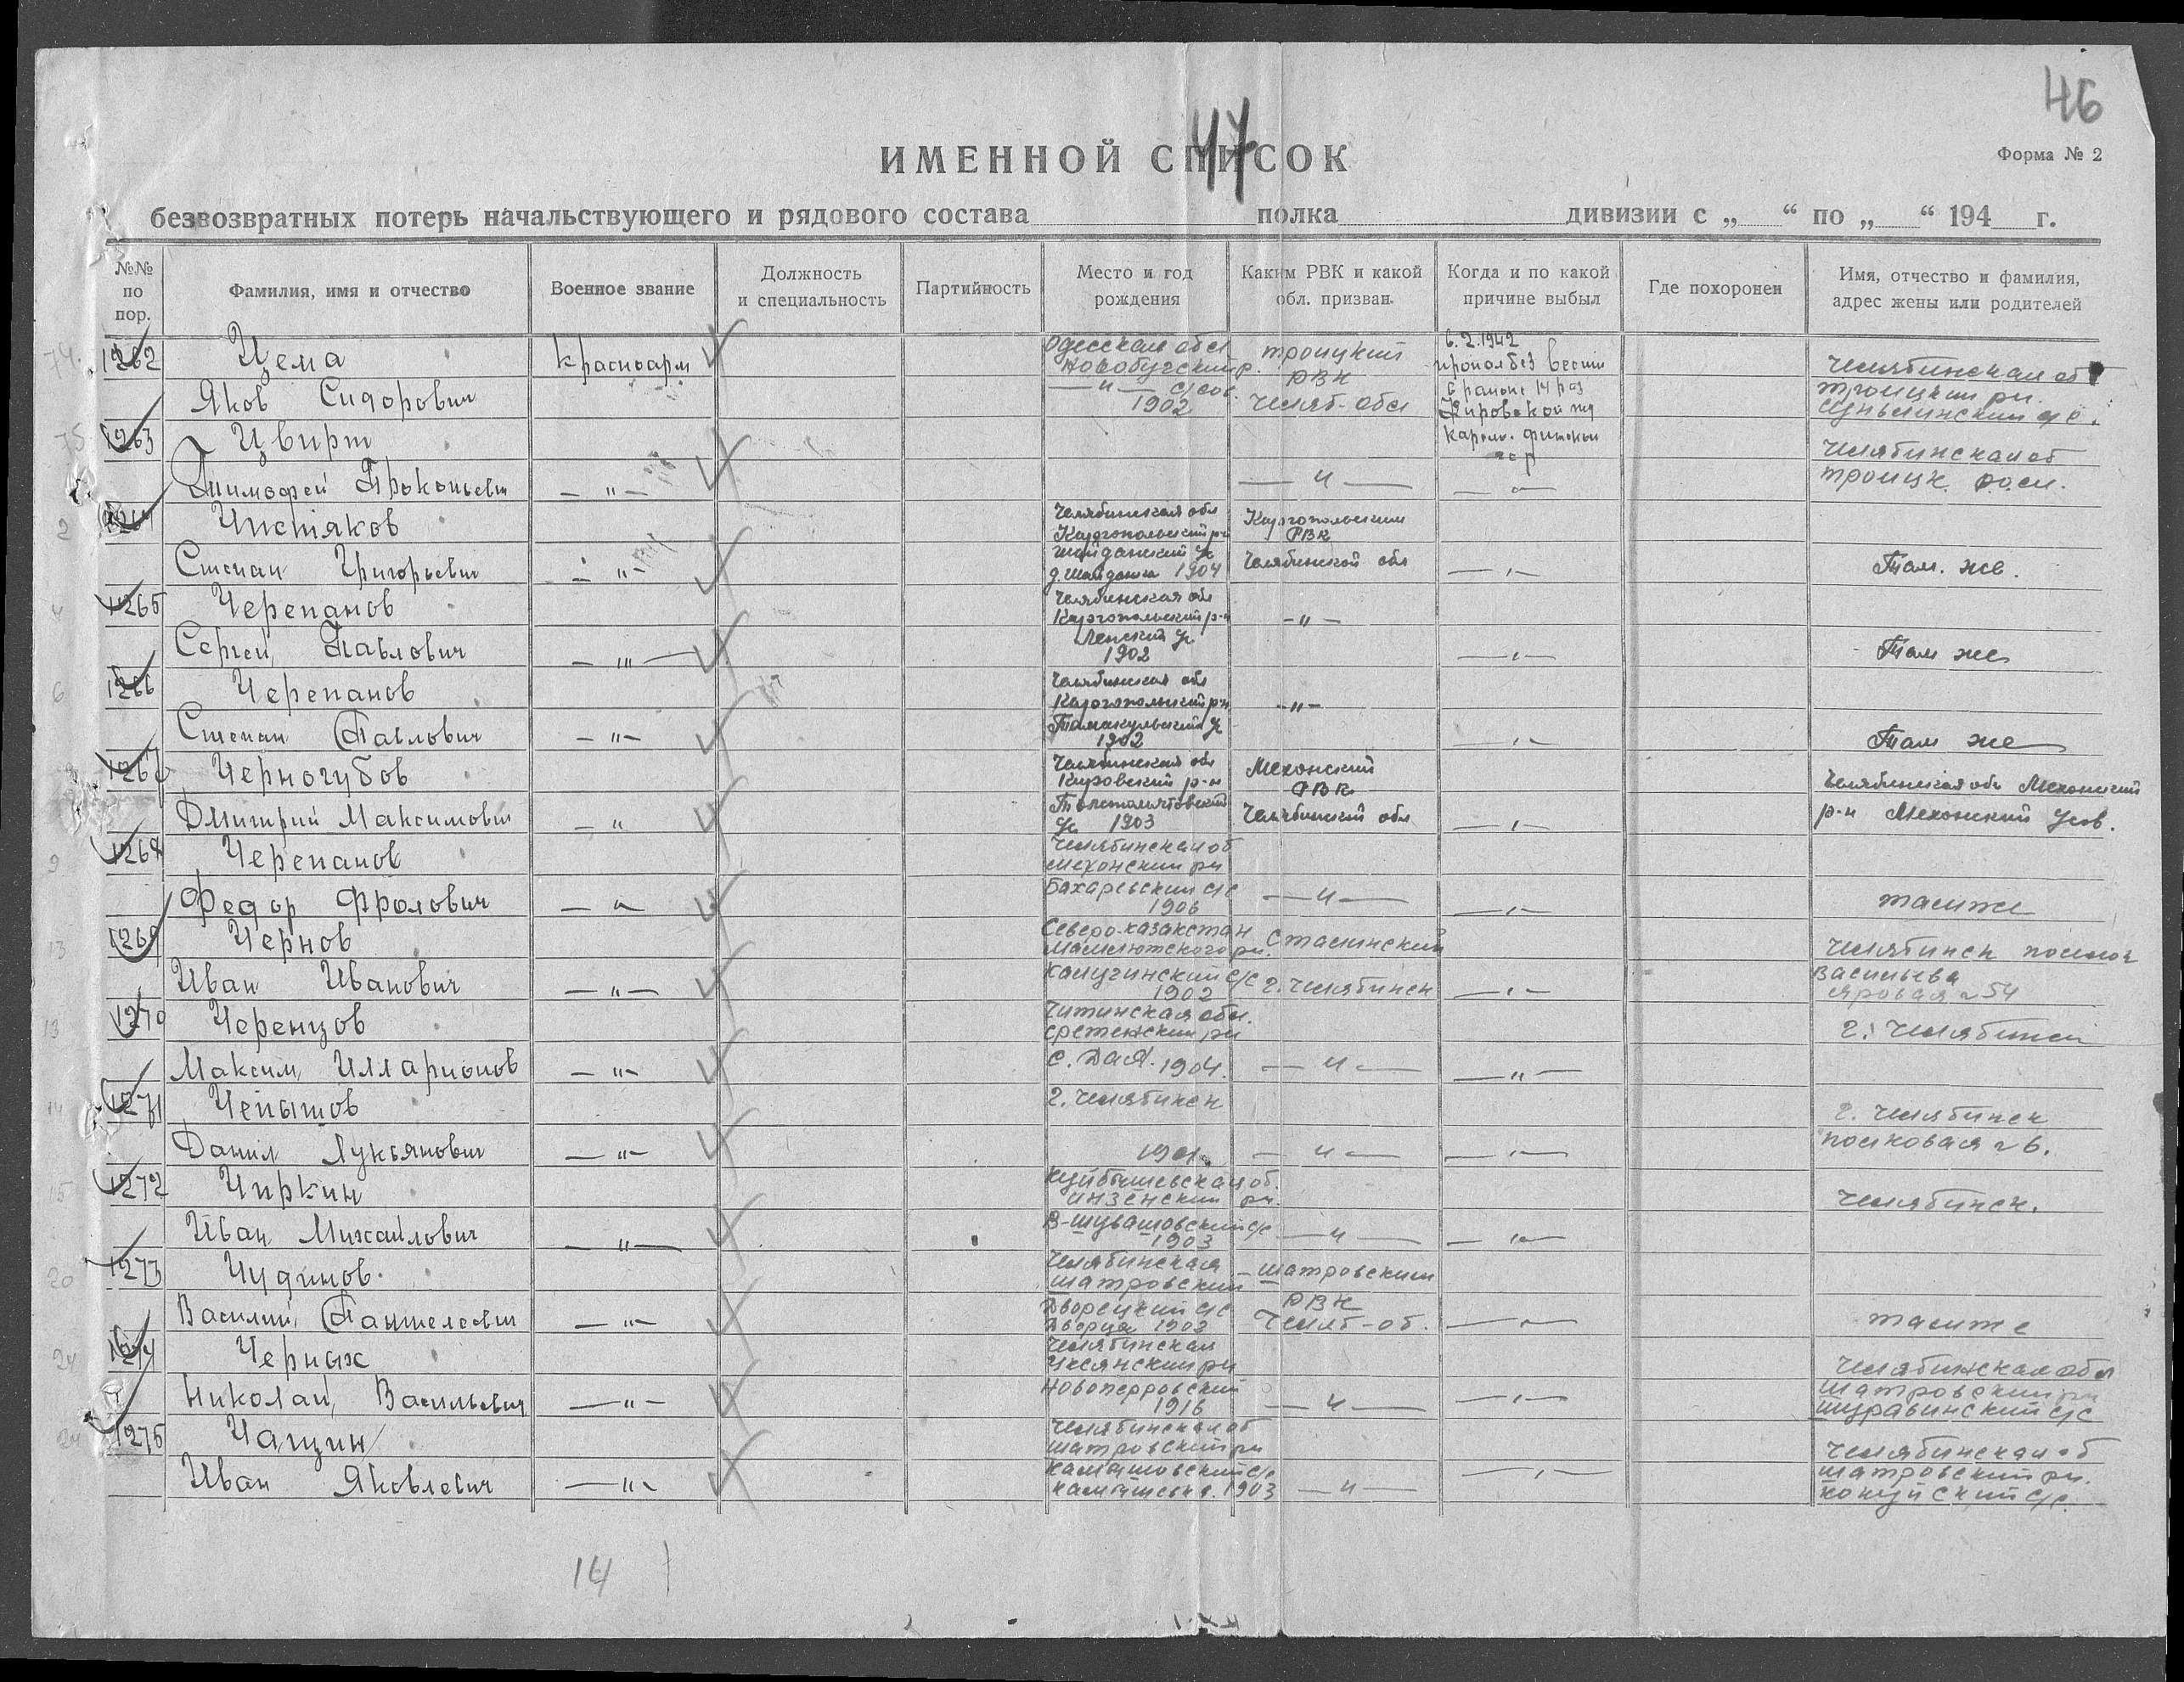 46
47
ИМЕННОЙ СПИСОК
Форма № 2
безвозвратных потерь начальствующего и рядового состава полка дивизии с „ “ по „ “ 194 г.
№№ по пор.
Фамилия, имя и отчество
Военное звание
Должность и специальность
Партийность
Место и год рождения
Каким РВК и какой обл. призван
Когда и по какой причине выбыл
Где похоронен
Имя, отчество и фамилия, адрес жены или родителей
74. 1262 Цема Красноарм Одесская обл Троицкий 6.2.1942
Новобугский р. РВК пропал без вести Челябинская об
Яков Сидорович —"— с/сов. в районе 14 раз Троицкий рн.
1902 Челяб-обл Кировской жд
75 1263 Цвирт Карело-финской
сср Челябинская об
Тимофей Прокопьевич —"— —"— —"— Троицк
2 1264 Чистяков Челябинская обл Каргопольским
Каргопольский р-н РВК
Степан Григорьевич —"— Шайданский Челябинской обл —"— Там. же.
1904
4 1265 Черепанов Челябинская обл
Каргопольский р-н —"—
Сергей Павлович —"— 1902 —"— Там же
6 1266 Черепанов Челябинская обл
Каргопольский р-н —"—
Степан Павлович —"— 1902 —"— Там же
1267 Черногубов Челябинская обл Мехонский
р-н РВК Челябинская обл Мехонский
Дмитрий Максимович —"— 1903 Челябинской обл —"— р-н Мехонский
9 1268 Черепанов Челябинская об
Мехонский рн
Федор Фролович —"— Бахаревский с/с —"— —"— там же
1906
13 1269 Чернов Северо-казакстан Сталинский
Мамлютского рн. Челябинск поселок
Иван Иванович —"— Калугинский с/с г. Челябинск —"— Васильева
1902 яровая № 54
13 1270 Черенцов Читинская обл.
Сретенский рн г. Челябинск
Максим Илларионов —"— с. 1904. —"— —"—
14 1271 г. Челябинск г. Челябинск
Данил Лукьянович —"— —"— —"— № 6.
15 1272 Чиркин Куйбышевская об.
Инзенский рн. Челябинск.
Иван Михайлович —"— с/с —"— —"—
1903
20 1273 Чудинов. Челябинская Шатровским
Шатровский РВК
Василий Пантелеевич —"— Дворецкий с/с Челяб-об. —"— там же
24 1274 Черных Челябинская
рн Челябинская обл
Николай Васильевич —"— 1916 —"— —"— Шатровский рн
с/с
24 1275 Чащин Челябинская об
Шатровский рн Челябинская об
Иван Яковлевич —"— с/с —"— —"— Шатровский рн.
1903 с/с.
14